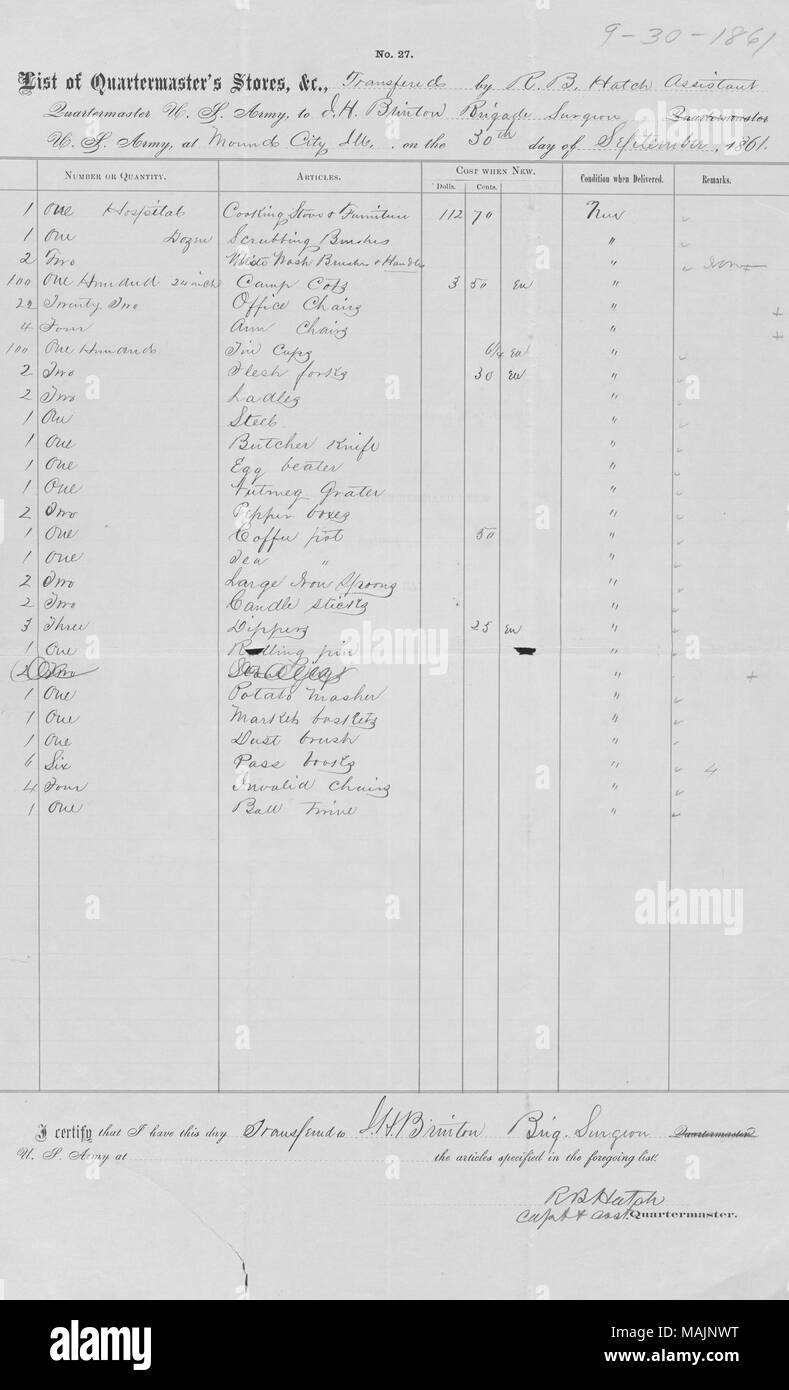 9-30-1861
No. 27.
List of Quartermaster's Stores, &c., Transfered by R. B. Hatch Assistant
Quartermaster U. S. Army, to J. H. Brinton Brigade Surgeon Quartermaster
U. S. Army, at Mound City Ills. on the 30th day of September, 1861.
Number or Quantity. Articles. Cost when New. Condition when Delivered. Remarks.
Dolls. Cents.
1 One Hospital Cooking Stove & Furniture 112 70 New
1 One Dozen Scrubbing Brushes "
2 Two White Wash Brushes & Handles "
100 One Hundred 24 inch Camp Cots 3 50 Ea "
22 Twenty Two Office Chairs " +
4 Four Arm Chairs " +
100 One Hundred Tin Cups 6/4 Ea "
2 Two Flesh forks 30 Ea "
2 Two Ladles "
1 One Steel "
1 One Butcher Knife "
1 One Egg beater "
1 One Nutmeg Grater "
2 Two Pepper boxes "
1 One Coffee pot 50 "
1 One Tea " "
2 Two Large Iron Spoons "
2 Two Candle sticks "
3 Three Dippers 25 Ea "
1 One Rolling pin "
2 Two " +
1 One Potato Masher "
1 One Market baskets "
1 One Dust brush "
6 Six Pass books " 4
4 Four Invalid Chairs "
1 One Ball Twine "
I certify that I have this day Transfered to J. H. Brinton Brig. Surgeon Quartermaster
U. S. Army at the articles specified in the foregoing list.
R B Hatch
Capt & Asst. Quartermaster.
alamy
Image ID: MAJNWT
www.alamy.com